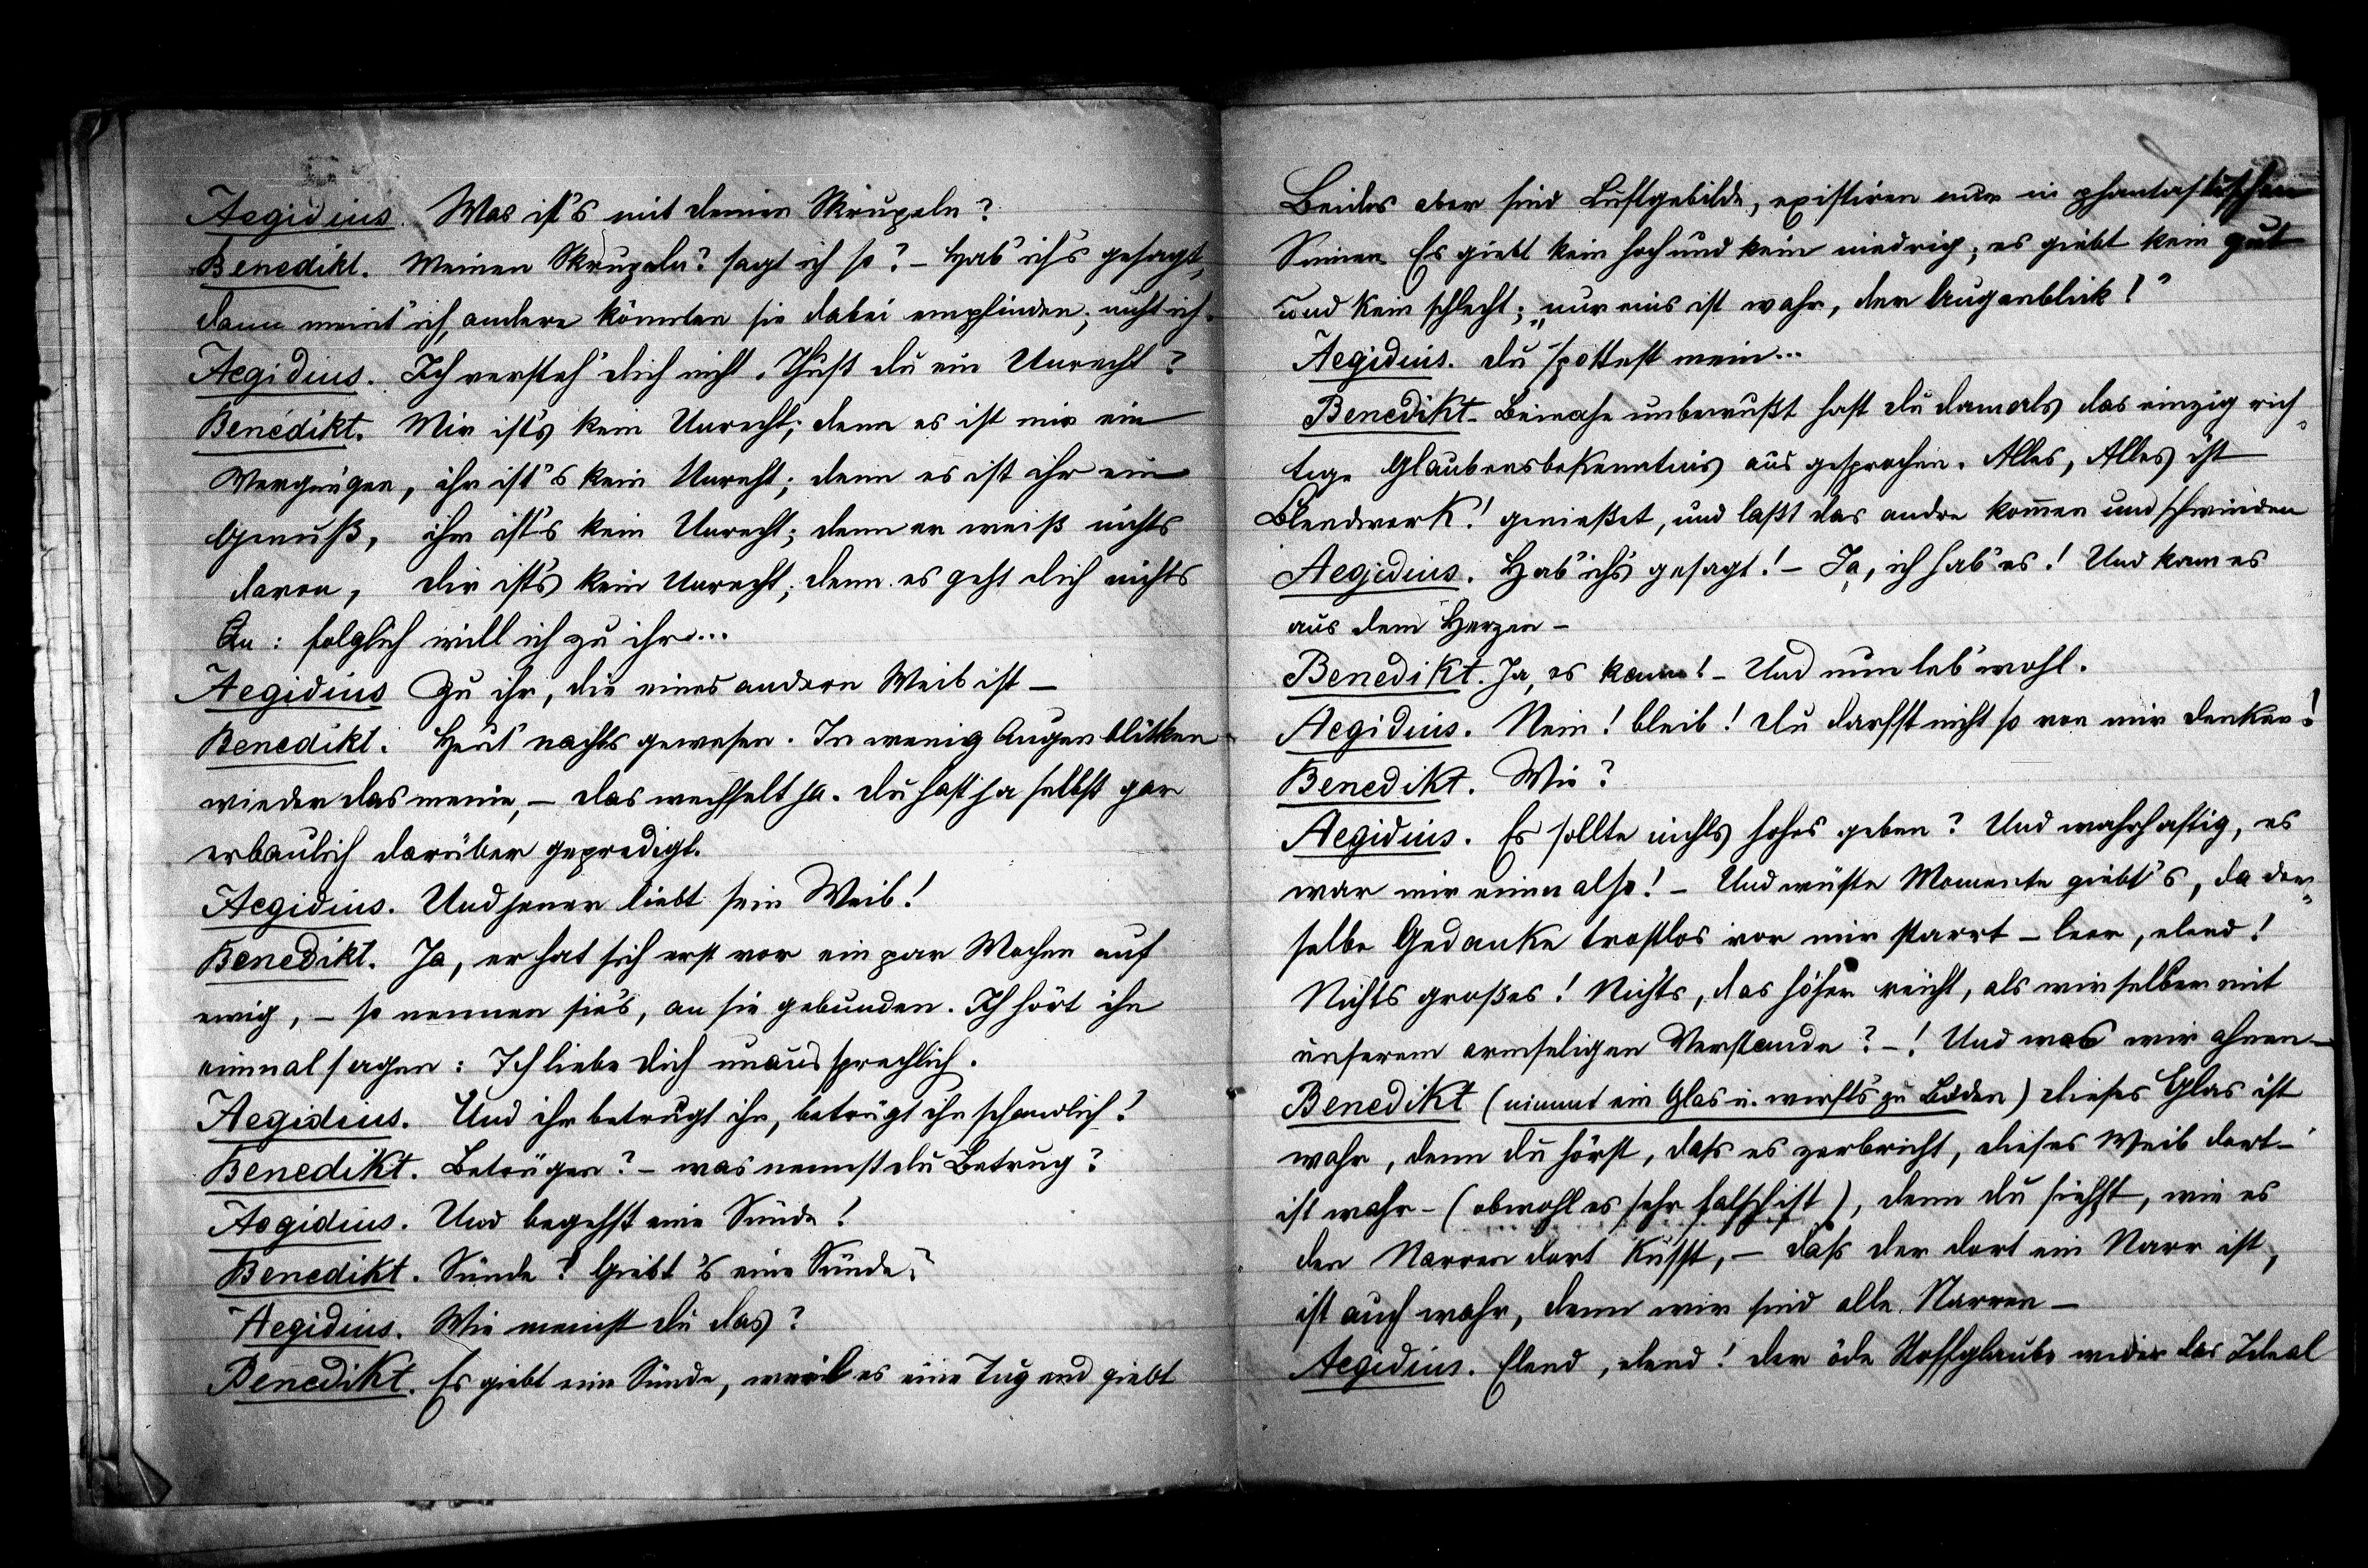 Aegidius. Was ist's mit deinen Skrupeln?
Benedikt. Meinen Skrupeln? sagt ich so? – Hab' ich's gesagt,
dann meint' ich, andere könnten sie dabei empfinden; nicht ich.
Aegidius. Ich versteh' dich nicht. Thust du ein Unrecht?
Benedikt. Mir ist's kein Unrecht; denn es ist mir ein
Vergnügen, ihr ist's kein Unrecht; denn es ist ihr ein
Genuß, ihm ist's kein Unrecht; denn er weiß nichts
davon, dir ist's kein Unrecht; denn es geht dich nichts
an: folglich will ich zu ihr...
Aegidius Zu ihr, die eines andern Weib ist –
Benedikt. Heut' nachts gewesen. In wenig Augenblicken
wieder das meine, – das wechselt ja. Du hast ja selbst gar
erbaulich darüber gepredigt.
Aegidius. Und jener liebt sein Weib!
Benedikt. Ja, er hat sich erst vor ein par Wochen auf
ewig, – so nennen sie's, an sie gebunden. Ich hört ihn
einmal sagen: Ich liebe dich unaussprechlich.
Aegidius. Und ihr betrügt ihn, betrügt ihn schandlich!
Benedikt. Betrügen? – was nennst du Betrug?
Aegidius. Und begehst eine Sünde!
Benedikt. Sünde? Giebt's eine Sünde?
Aegidius. Wie meinst du das?
Benedikt. Es giebt eine Sünde, weil es eine Tugend giebt
Beides aber sind Luftgebilde, existiren nur in phantastischen
Sinnen. Es giebt kein hoch und kein niedrig; es giebt kein gut
und kein schlecht; „nur eins ist wahr, der Augenblick!"
Aegidius. Du spottest mein...
Benedikt. Beinahe unbewußt hast du damals das einzig rich-
tige Glaubensbekenntnis ausgesprochen. Alles, Alles ist
Blendwerk! genießet, und laßt das andre kommen und schwinden
Aegidius. Hab' ich's gesagt! – Ja, ich hab' es! Und kam es
aus dem Herzen –
Benedikt. Ja, es kam! – Und nun leb' wohl.
Aegidius. Nein! bleib! Du darfst nicht so von mir denken!
Benedikt. Wie?
Aegidius. Es sollte nichts hohes geben? Und wahrhaftig, es
war mir einen also! – Und wüste Momente giebt's, da der-
selbe Gedanke trostlos vor mir starrt – leer, elend!
Nichts großes! Nichts, das höher reicht, als wir selber mit
unserem armseligen Verstande? –! Und was wir ahnen –
Benedikt (nimmt ein Glas u. wirft's zu Boden) dieses Glas ist
wahr, denn du hörst, daß es zerbricht, dieses Weib dort –
ist wahr – (obwohl es sehr falsch ist), denn du siehst, wie es
den Narren dort küsst, – daß der dort ein Narr ist,
ist auch wahr, denn wir sind alle Narren –
Aegidius. Elend, elend! der öde Stoffglaube wider das Ideal